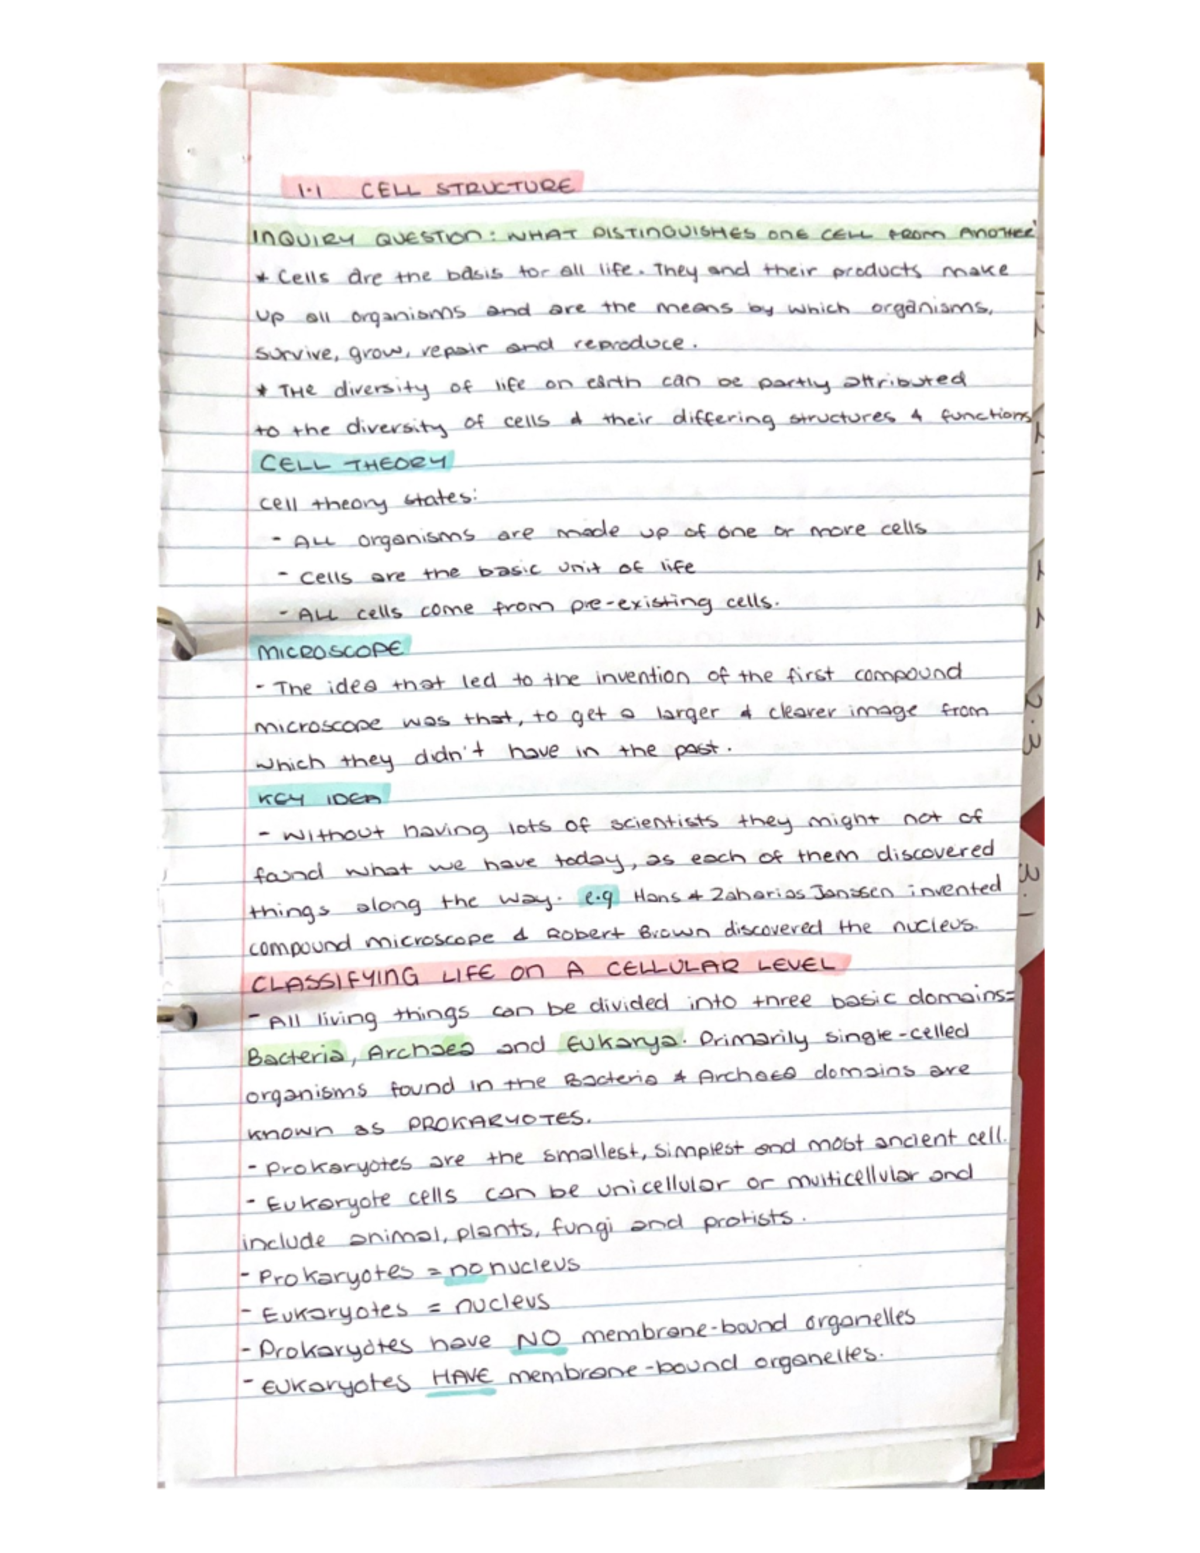 1.1 CELL STRUCTURE
INQUIRY QUESTION: WHAT DISTINGUISHES ONE CELL FROM ANOTHER
* Cells are the basis for all life. They and their products make
up all organisms and are the means by which organisms,
survive, grow, repair and reproduce.
* THE diversity of life on earth can be partly attributed
to the diversity of cells & their differing structures & functions
CELL THEORY
Cell theory states:
- ALL organisms are made up of one or more cells
- Cells are the basic unit of life
- ALL cells come from pre-existing cells.
MICROSCOPE
- The idea that led to the invention of the first compound
microscope was that, to get a larger & clearer image from
which they didn't have in the past.
KEY IDEA
- Without having lots of scientists they might not of
found what we have today, as each of them discovered
things along the way. e.g Hans & Zaharias Janssen invented
compound microscope & Robert Brown discovered the nucleus.
CLASSIFYING LIFE ON A CELLULAR LEVEL
- All living things can be divided into three basic domains=
Bacteria, Archaea and Eukarya. Primarily single-celled
organisms found in the Bacteria & Archaea domains are
known as PROKARYOTES.
- Prokaryotes are the smallest, simplest and most ancient cell.
- Eukaryote cells can be unicellular or multicellular and
include animal, plants, fungi and protists.
- Prokaryotes = no nucleus
- Eukaryotes = nucleus
- Prokaryotes have NO membrane-bound organelles
- Eukaryotes HAVE membrane-bound organelles.
2.3
3.1